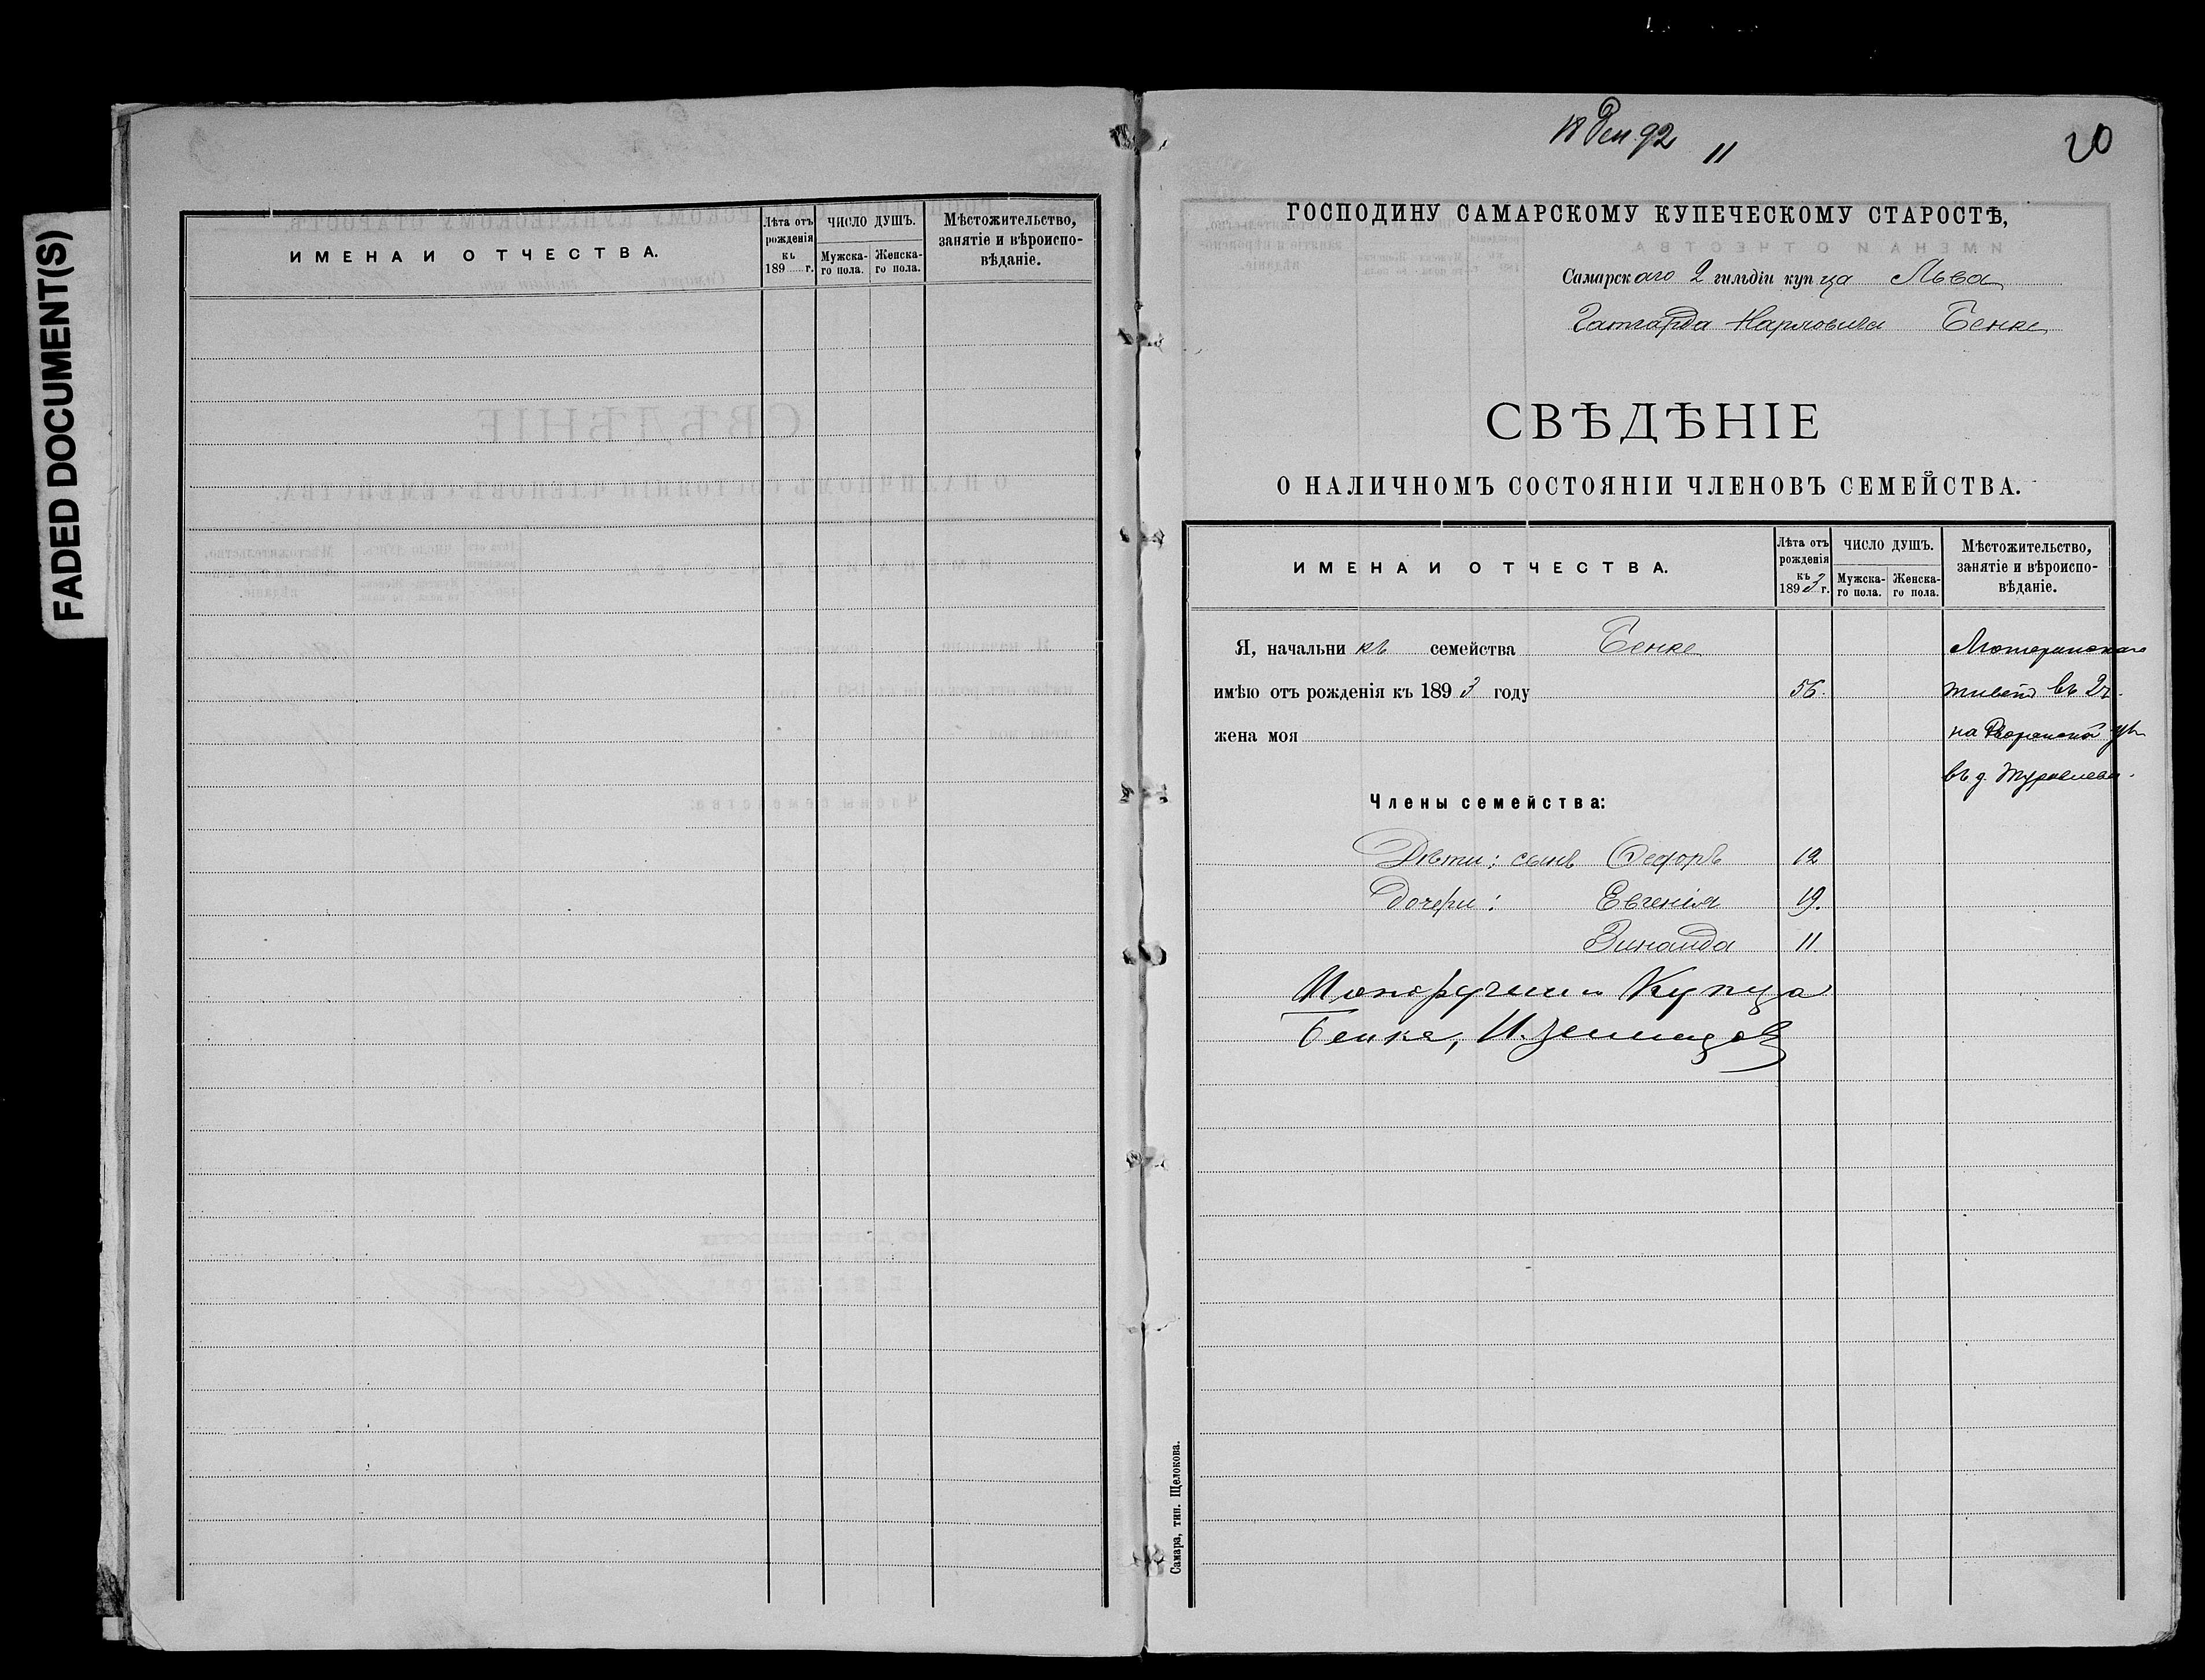 FADED DOCUMENT(S)
ИМЕНА И ОТЧЕСТВА.
Лѣта отъ рожденія къ 189 г.
ЧИСЛО ДУШЪ.
Мужска-го пола.
Женска-го пола.
Мѣстожительство, занятіе и вѣроиспо-вѣданіе.
18 Дек 92
11
20
ГОСПОДИНУ САМАРСКОМУ КУПЕЧЕСКОМУ СТАРОСТѢ,
Самарскаго 2 гильдіи купца Льва
Гатгарда Карловича Бенке
СВѢДѢНІЕ
О НАЛИЧНОМЪ СОСТОЯНІИ ЧЛЕНОВЪ СЕМЕЙСТВА.
ИМЕНА И ОТЧЕСТВА.
Лѣта отъ рожденія къ 1893 г.
ЧИСЛО ДУШЪ.
Мужска-го пола.
Женска-го пола.
Мѣстожительство, занятіе и вѣроиспо-вѣданіе.
Я, начальникъ семейства Бенке Лютеранскаго
имѣю отъ рожденія къ 1893 году 56. живетъ въ 2ч.
жена моя на Дворянской ул.
въ д. Журавлева.
Члены семейства:
Дѣти: сынъ Федоръ 12
Дочери: Евгенія 19.
Зинаида 11.
Купца
Бенке, И.
Самара, тип. Щелокова.